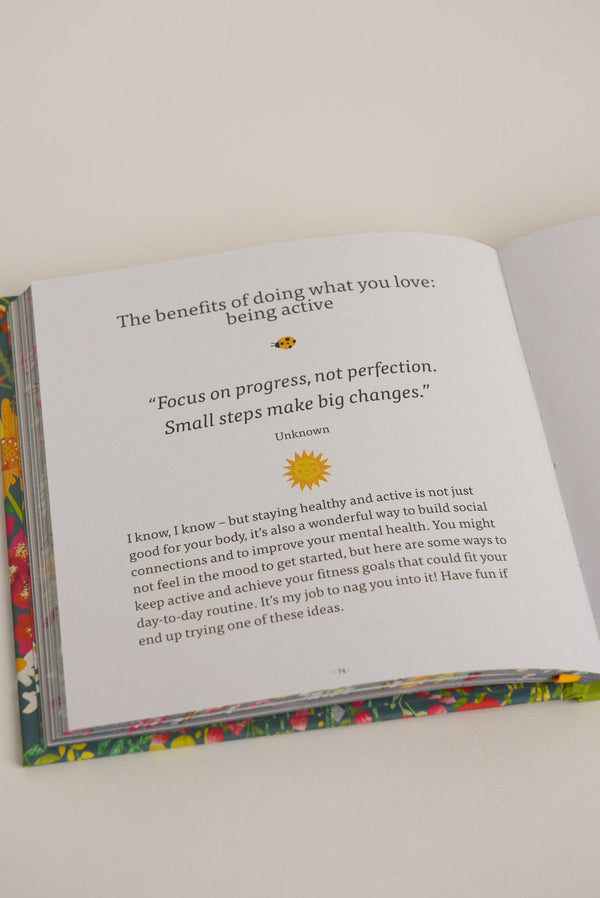 The benefits of doing what you love:
being active
“Focus on progress, not perfection.
Small steps make big changes.”
Unknown
I know, I know – but staying healthy and active is not just
good for your body, it's also a wonderful way to build social
connections and to improve your mental health. You might
not feel in the mood to get started, but here are some ways to
keep active and achieve your fitness goals that could fit your
day-to-day routine. It's my job to nag you into it! Have fun if
end up trying one of these ideas.
- 74 -